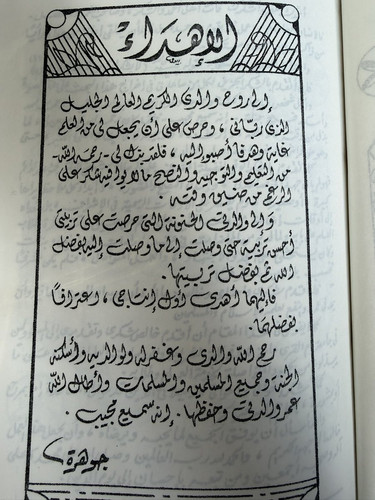 الإهداء
إلى روح والدي الكريم العالم الجليل
الذي ربّاني، وحرص على أن يجعل لي من العلم
غاية وهدفا أصبو إليه، فلقد بذل لي - رحمه الله -
من التعليم والتوجيه والنصح ما لا يوافيه شكر على
الرغم من ضيق وقته.
وإلى والدتي الحنونة التي حرصت على تربيتي
أحسن تربية حتى وصلت إلى ما وصلت إليه بفضل
الله ثم بفضل تربيتها.
فإليهما أهدي أول إنتاجي، اعترافًا
بفضلهما.
رحم الله والدي وغفر له ولوالديه وأسكنه
الجنة وجميع المسلمين والمسلمات وأطال الله
عمر والدتي وحفظها. إنه سميع مجيب.
جوهرة